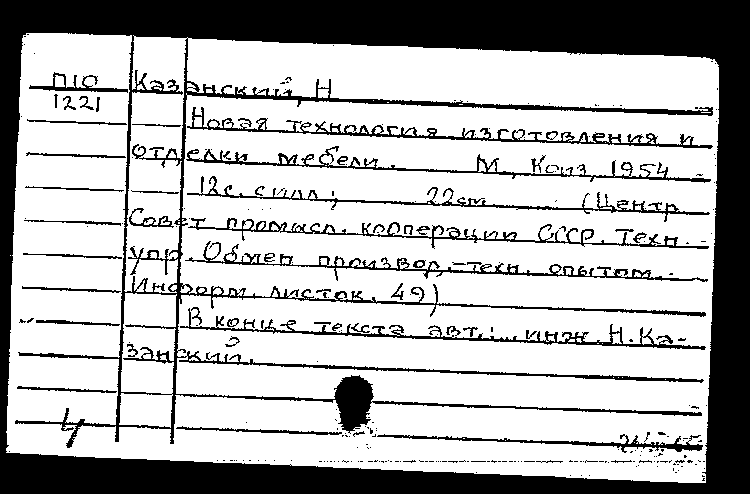 П10 Казанский, Н
1221
Новая технология изготовления и
отделки мебели. М., Коиз, 1954 -
12с. с илл.; 22см (Центр.
Совет промысл. кооперации СССР. Техн.
упр. Обмен производ.-техн. опытом.
Информ. листок. 49)
В конце текста авт.: инж. Н. Ка-
занский.
4